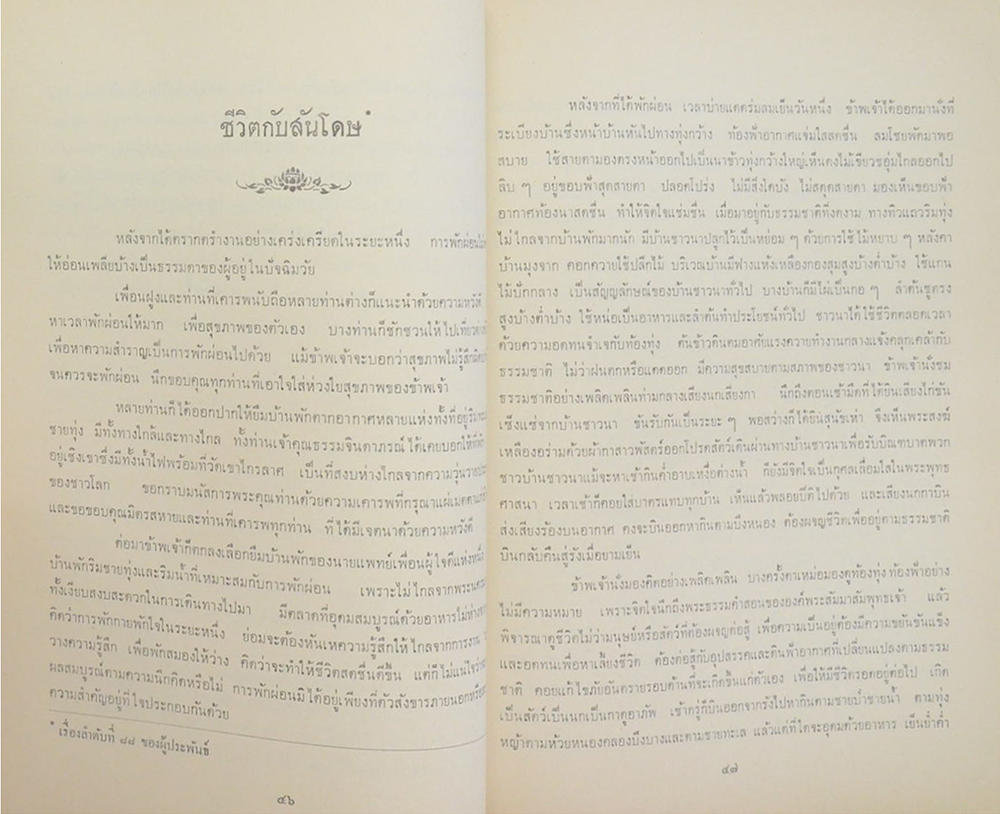 ชีวิตกับสันโดษ*
หลังจากได้ตรากตรำงานอย่างเคร่งเครียดในระยะหนึ่ง การพักผ่อน
ให้อ่อนเพลียบ้างเป็นธรรมดาของผู้อยู่ในปัจฉิมวัย
เพื่อนฝูงและท่านที่เคารพนับถือหลายท่านต่างก็แนะนำด้วยความหวังดี
หาเวลาพักผ่อนให้มาก เพื่อสุขภาพของตัวเอง บางท่านก็ชักชวนให้ไปเที่ยว
เพื่อหาความสำราญเป็นการพักผ่อนไปด้วย แม้ข้าพเจ้าจะบอกว่าสุขภาพไม่รู้สึก
จนควรจะพักผ่อน นึกขอบคุณทุกท่านที่เอาใจใส่ห่วงใยสุขภาพของข้าพเจ้า
หลายท่านก็ได้ออกปากให้ยืมบ้านพักตากอากาศหลายแห่งทั้งที่อยู่ริม
ชายทุ่ง มีทั้งทางใกล้และทางไกล ทั้งท่านเจ้าคุณธรรมจินดาภรณ์ ได้เคยบอกให้
อยู่เชิงเขาซึ่งมีทั้งน้ำไฟพร้อมที่วัดเขาไกรลาศ เป็นที่สงบห่างไกลจากความวุ่นวาย
ของชาวโลก ขอกราบมนัสการพระคุณท่านด้วยความเคารพที่กรุณาแผ่เมตตา
และขอขอบคุณมิตรสหายและท่านที่เคารพทุกท่าน ที่ได้มีเจตนาด้วยความหวังดี
ต่อมาข้าพเจ้าก็ตกลงเลือกยืมบ้านพักของนายแพทย์เพื่อนผู้ใจดีแห่งหนึ่ง
บ้านพักริมชายทุ่งและริมน้ำที่เหมาะสมกับการพักผ่อน เพราะไม่ไกลจากพระนคร
ทั้งเงียบสงบสะดวกในการเดินทางไปมา มีตลาดที่อุดมสมบูรณ์ด้วยอาหารไม่ห่าง
คิดว่าการพักกายพักใจในระยะหนึ่ง ย่อมจะต้องหันเหความรู้สึกให้ไกลจากการงาน
วางความรู้สึก เพื่อพักสมองให้ว่าง คิดว่าจะทำให้ชีวิตสดชื่นดีขึ้น แต่ก็ไม่แน่ใจว่า
ผลสมบูรณ์ตามความนึกคิดหรือไม่ การพักผ่อนมิได้อยู่เพียงที่ตัวสังขารภายนอก
ความสำคัญอยู่ที่ใจประกอบกันด้วย
* เรื่องลำดับที่ ๘๘ ของผู้ประพันธ์
๔๖
หลังจากที่ได้พักผ่อน เวลาบ่ายแดดร่มลมเย็นวันหนึ่ง ข้าพเจ้าได้ออกมานั่งที่
ระเบียงบ้านซึ่งหน้าบ้านหันไปทางทุ่งกว้าง ท้องฟ้าอากาศแจ่มใสสดชื่น ลมโชยพัดมาพอ
สบาย ใช้สายตามองตรงหน้าออกไปเป็นนาข้าวทุ่งกว้างใหญ่เห็นดงไม้เขียวชอุ่มไกลออกไป
ลิบ ๆ อยู่ขอบฟ้าสุดสายตา ปลอดโปร่ง ไม่มีสิ่งใดบัง ไม่สดุดสายตา มองเห็นขอบฟ้า
อากาศท้องนาสดชื่น ทำให้จิตใจแช่มชื่น เมื่อมาอยู่กับธรรมชาติที่งดงาม ทางทิวแถวริมทุ่ง
ไม่ไกลจากบ้านพักมากนัก มีบ้านชาวนาปลูกไว้เป็นหย่อม ๆ ด้วยการใช้ไม้หยาบ ๆ หลังคา
บ้านมุงจาก คอกควายใช้ปลีกไม้ บริเวณบ้านมีฟางแห้งเหลืองกองสุมสูงบ้างต่ำบ้าง ใช้แกน
ไม้ปักกลาง เป็นสัญญลักษณ์ของบ้านชาวนาทั่วไป บางบ้านก็มีไผ่เป็นกอ ๆ ลำต้นชูตรง
สูงบ้างต่ำบ้าง ใช้หน่อเป็นอาหารและลำต้นทำประโยชน์ทั่วไป ชาวนาได้ใช้ชีวิตตลอดเวลา
ด้วยความอดทนจำเจกับท้องทุ่ง ต้นข้าวคันคมอาศัยแรงควายทำงานกลางแจ้งคลุกเคล้ากับ
ธรรมชาติ ไม่ว่าฝนตกหรือแดดออก มีความสุขสบายตามสภาพของชาวนา ข้าพเจ้านั่งชม
ธรรมชาติอย่างเพลิดเพลินท่ามกลางเสียงนกเสียงกา นึกถึงตอนเช้ามืดที่ได้ยินเสียงไก่ขัน
เซ็งแซ่จากบ้านชาวนา ขันรับกันเป็นระยะ ๆ พอสว่างก็ได้ยินสุนัขเห่า จึงเห็นพระสงฆ์
เหลืองอร่ามด้วยผ้ากาสาวพัสตร์ออกโปรดสัตว์เดินผ่านทางบ้านชาวนาเพื่อรับบิณฑบาตพวก
ชาวบ้านชาวนาแม้จะหาเช้ากินค่ำอาบเหงื่อต่างน้ำ ก็ยังมีจิตใจเป็นกุศลเลื่อมใสในพระพุทธ
ศาสนา เวลาเช้าก็คอยใส่บาตรแทบทุกบ้าน เห็นแล้วพลอยปีติไปด้วย และเสียงนกกาบิน
ส่งเสียงร้องบนอากาศ คงจะบินออกหากินตามบึงหนอง ต้องผจญชีวิตเพื่ออยู่ตามธรรมชาติ
บินกลับคืนสู่รังเมื่อยามเย็น
ข้าพเจ้านั่งมองคิดอย่างเพลิดเพลิน บางครั้งตาเหม่อมองดูท้องทุ่งท้องฟ้าอย่าง
ไม่มีความหมาย เพราะจิตใจนึกถึงพระธรรมคำสอนขององค์พระสัมมาสัมพุทธเจ้า แล้ว
พิจารณาดูชีวิตไม่ว่ามนุษย์หรือสัตว์ที่ต้องผจญต่อสู้ เพื่อความเป็นอยู่ต้องมีความขยันขันแข็ง
และอดทนเพื่อหาเลี้ยงชีวิต ต้องต่อสู้กับอุปสรรคและดินฟ้าอากาศที่เปลี่ยนแปลงตามธรรม
ชาติ คอยแก้ไขภัยอันตรายรอบด้านที่จะเกิดขึ้นแก่ตัวเอง เพื่อให้มีชีวิตรอดอยู่ต่อไป เกิด
เป็นสัตว์เป็นนกเป็นกาดูอาภัพ เช้าตรู่ก็บินออกจากรังไปหากินตามชายป่าชายน้ำ ตามทุ่ง
หญ้าตามห้วยหนองคลองบึงบางและตามชายทะเล แล้วแต่ที่ใดจะอุดมด้วยอาหาร เย็นย่ำค่ำ
๔๗